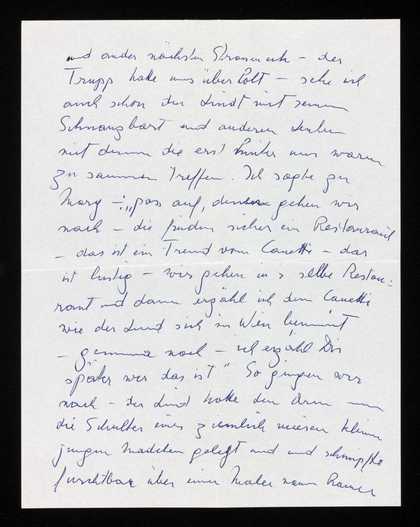 und an der nächsten Strassenecke – der
Trupp hatte uns überholt – sehe ich
auch schon den Lindt mit seinem
Schnauzbart und anderen Leuten
mit denen die erst hinter uns waren
zusammen treffen. Ich sagte zu
Mary –: „pass auf, denen gehen wir
nach – die finden sicher ein Restaurant
– das ist ein Freund vom Canetti – das
ist lustig – wir gehen ins selbe Restau-
rant und dann erzähl ich dem Canetti
wie der Lindt sich in Wien benimmt
– gemma nach – ich erzähl Dir
später wer das ist" So gingen wir
nach – der Lindt hatte den Arm um
die Schulter eines ziemlich miesen kleinen
jungen Mädchen gelegt und und schimpfte
furchtbar über einen Maler namens